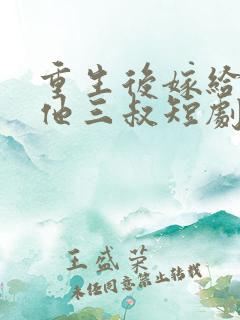 重生後嫁給
他三叔短劇
王盛荣
未径同意禁止转载